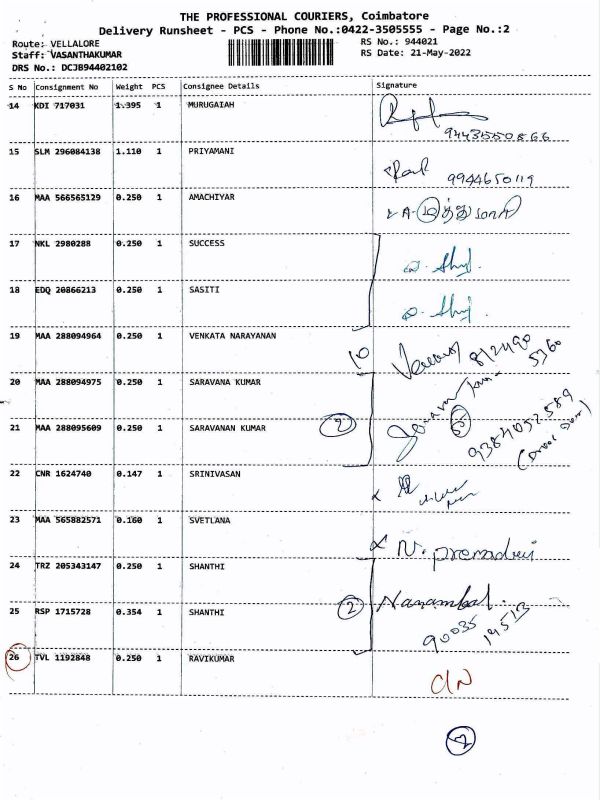 THE PROFESSIONAL COURIERS, Coimbatore
Delivery Runsheet - PCS - Phone No.:0422-3505555 - Page No.:2
Route: VELLALORE
RS No.: 944021
Staff: VASANTHAKUMAR
RS Date: 21-May-2022
DRS No.: DCJB94402102
S No Consignment No Weight PCS Consignee Details Signature
14 KDI 717031 1.395 1 MURUGAIAH
9443550866
15 SLM 296084138 1.110 1 PRIYAMANI
9944650119
16 MAA 566565129 0.250 1 AMACHIYAR
17 NKL 2980288 0.250 1 SUCCESS
18 EDQ 20866213 0.250 1 SASITI
19 MAA 288094964 0.250 1 VENKATA NARAYANAN
10
82490
5360
20 MAA 288094975 0.250 1 SARAVANA KUMAR
21 MAA 288095609 0.250 1 SARAVANAN KUMAR
2
9384052589
22 CNR 1624740 0.147 1 SRINIVASAN
23 MAA 565882571 0.160 1 SVETLANA
N. premadevi
24 TRZ 205343147 0.250 1 SHANTHI
25 RSP 1715728 0.354 1 SHANTHI
2 Nanambal.
90035 19513
26 TVL 1192848 0.250 1 RAVIKUMAR
C/N
2